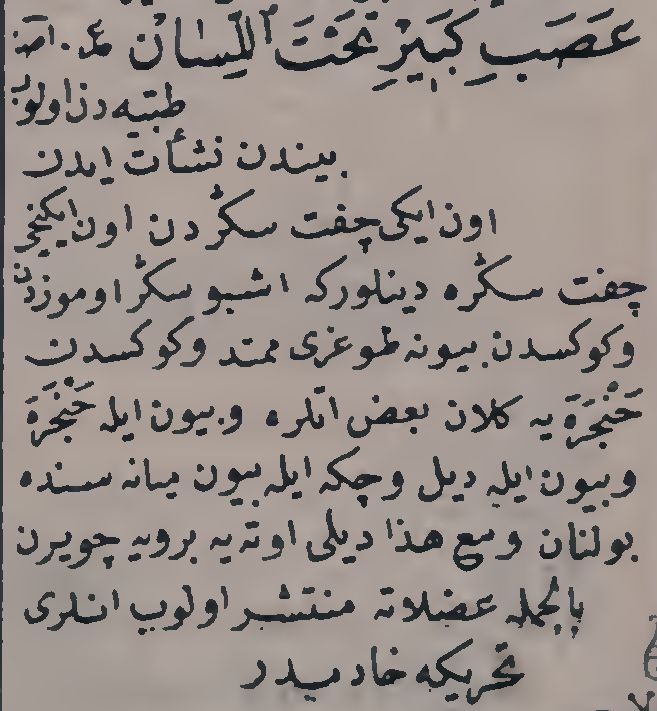 عَصَبِ كَبِيرِ تَحْتَ اللِّسَانْ عۦ . اصـ
طبیه دن اولوب
بیندن نشأت ایدن
اون ایكی چفت سڭردن اون ایكنجی
چفت سڭره دینلوركه اشبو سڭر اوموزدن
وكوكسدن بیونه طوغری ممتد وكوكسدن
حَنْجَرَهٔ یه كلان بعض اتلره وبیون ایله حَنْجَرَه
وبیون ایله دیل وچكه ایله بیون میانه سنده
بولنان ومع هذا دیلی اوته یه برویه چویرن
بالجمله عضلاته منتشر اولوب انلری
تحریكه خادمیدر